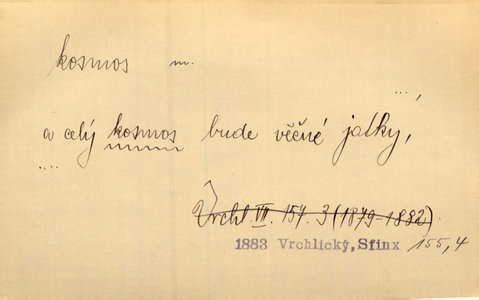 kosmos m.
...,
a celý kosmos bude věčné jatky,
....
Vrchl. VII. 157. 3 (1879-1882).
1883 Vrchlický, Sfinx 155,4